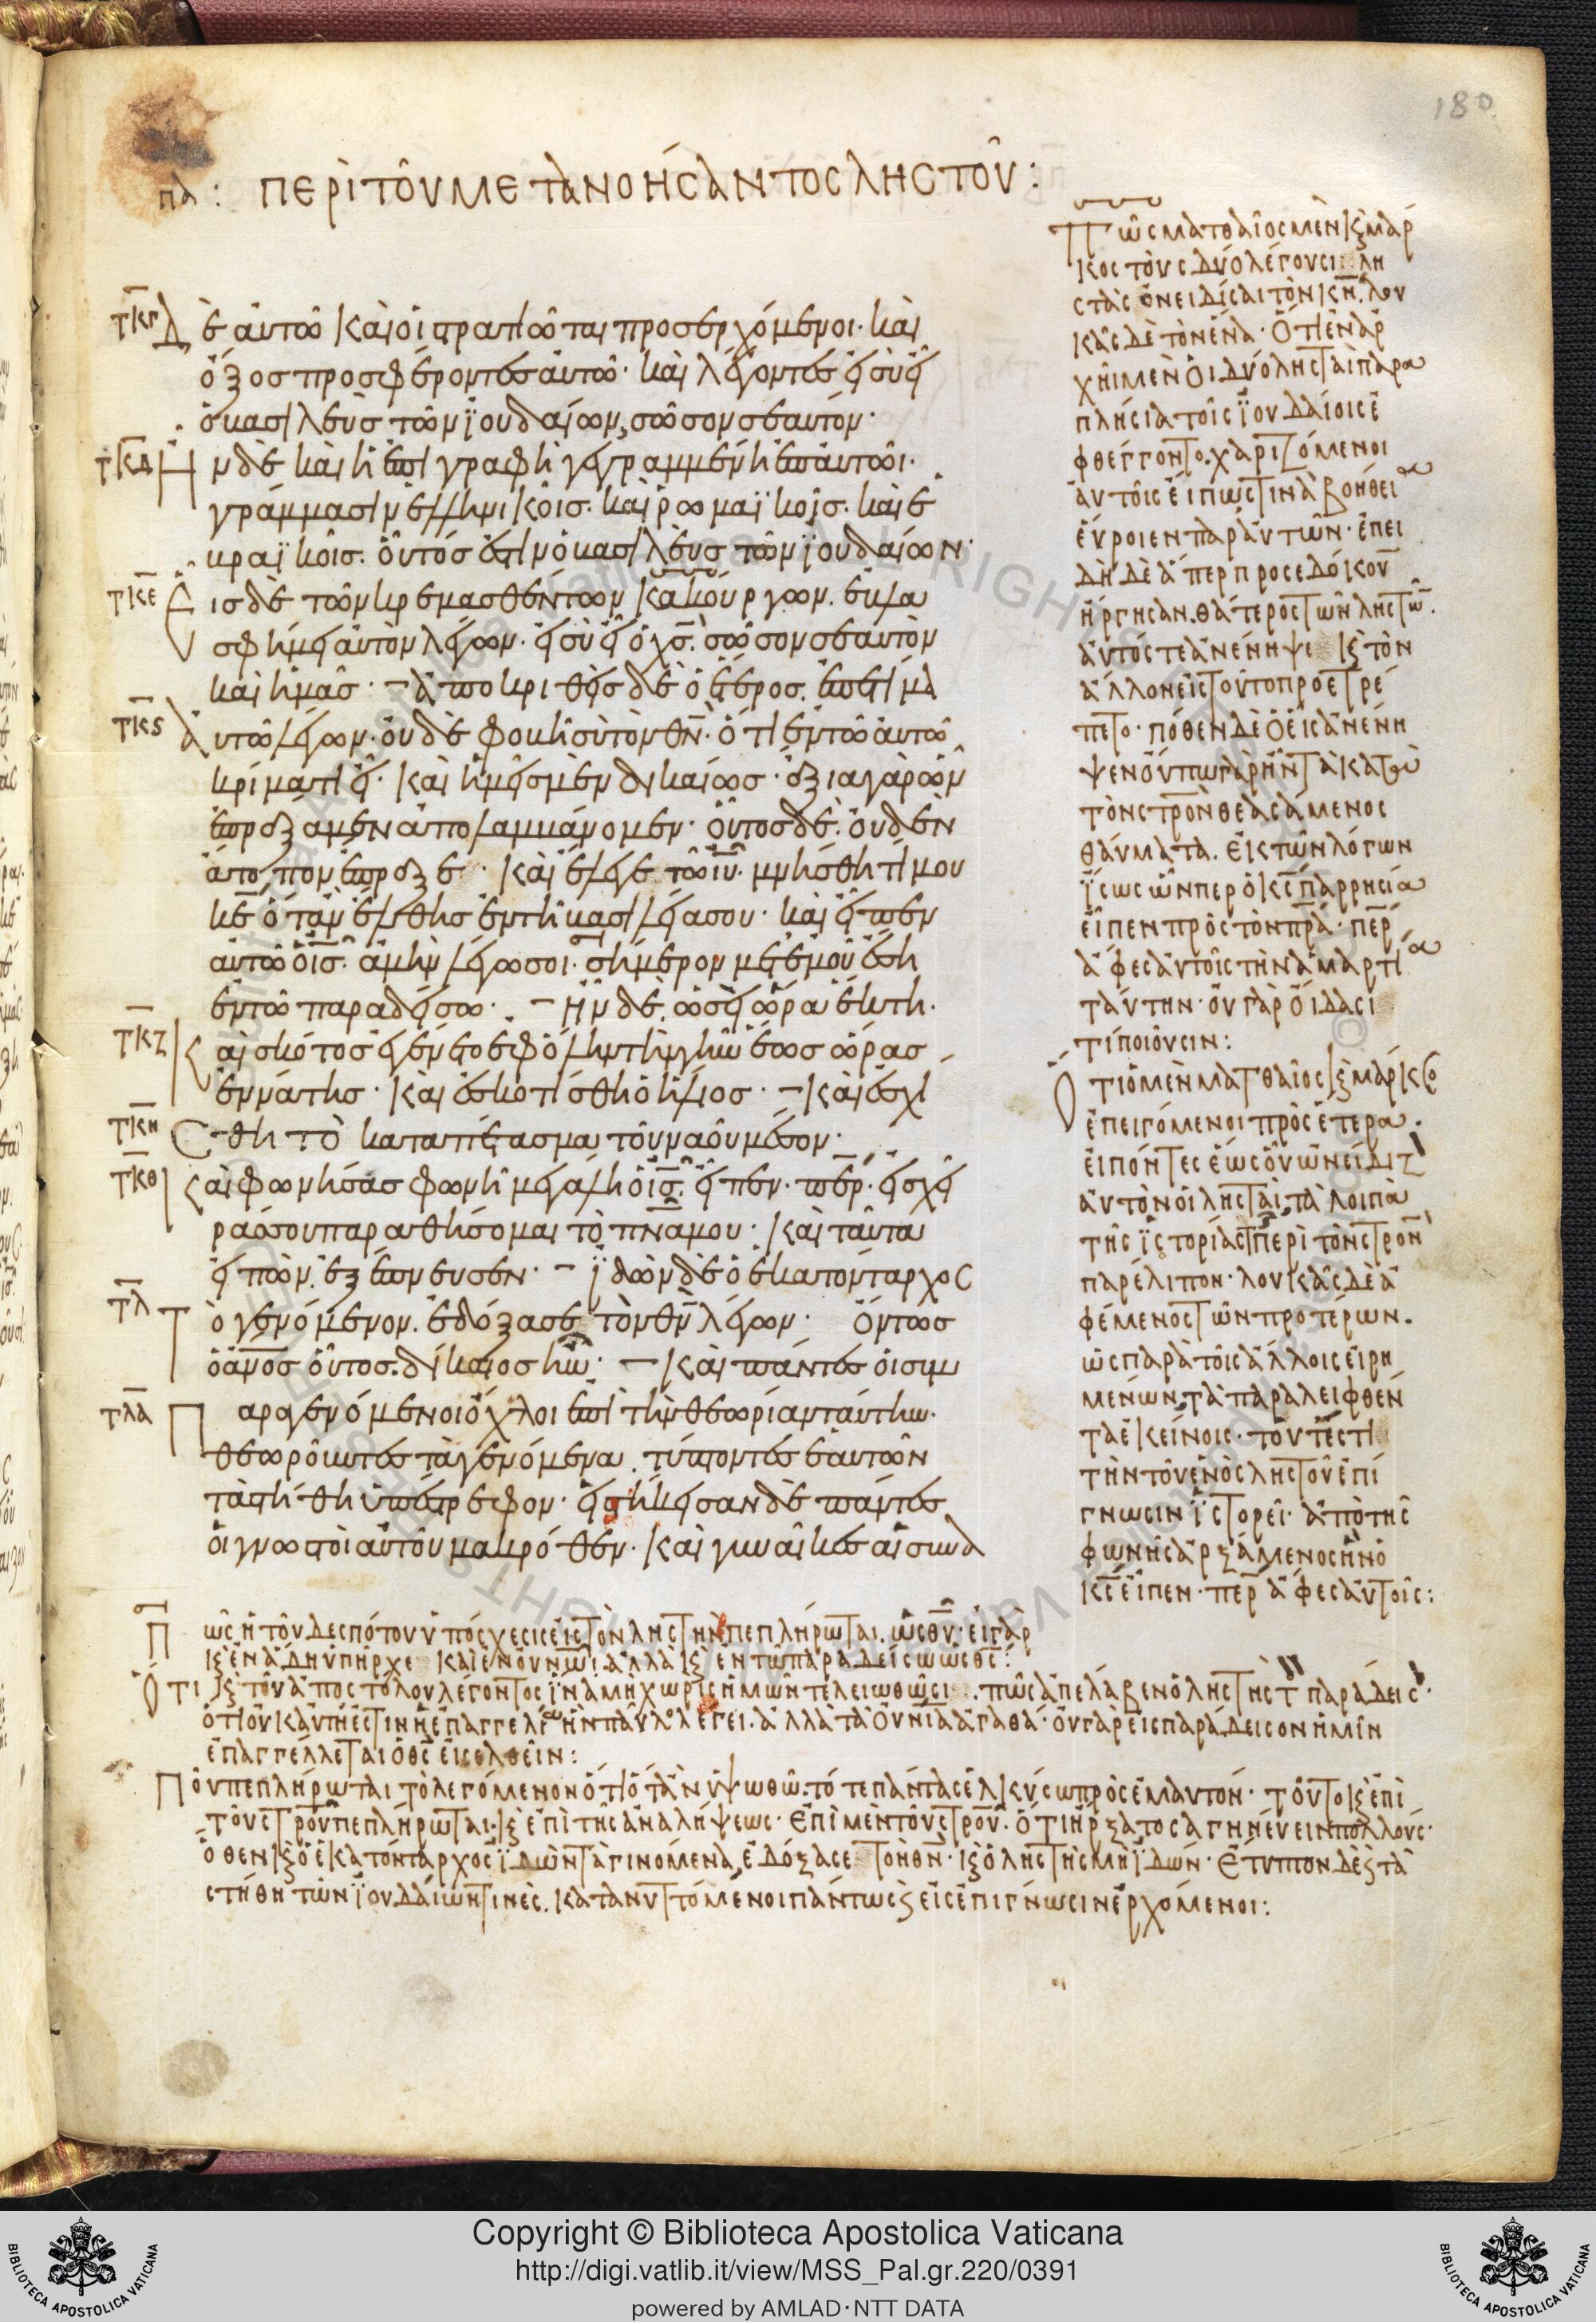 180
πα: ΠΕΡῚ ΤΟῦ ΜΕΤΑΝΟΉCΑΝΤΟC ΛΗCΤΟῦ:
τκγ δὲ αὐτῶ καὶ οἱ στρατιῶται προσερχόμενοι· καὶ
ὄξος προσφέροντες αὐτῶ· καὶ λέγοντες εἰ σὺ εἶ
ὁ βασιλεὺς τῶν ϊουδαίων, σῶσον σεαυτόν·
τκδ Ην δὲ καὶ ἡ ἐπιγραφὴ γεγραμμένη ἐπ αὐτῶι·
γράμμασιν ἑλληνικοῖς· καὶ ρωμαϊκοῖς· καὶ ἑ
βραϊκοῖς. οὗτός ἐστιν ὁ βασιλεὺς τῶν ϊουδαίων·
τκε Εἷς δὲ τῶν κρεμασθέντων κακούργων. ἐβλα
σφήμει αὐτὸν λέγων· εἰ σὺ εἶ ὁ χς. σῶσον σεαυτὸν
καὶ ἡμᾶς· – ἀποκριθεὶς δὲ ὁ ἕτερος. ἐπετίμα
τκς αὐτῶ λέγων· οὐδὲ φοβῆ σὺ τὸν θν· ὅτι ἐν τῶ αὐτῶ
κρίματι εἶ· καὶ ἡμεῖς μὲν δικαίως· ἄξια γὰρ ὧν
ἐπράξαμεν ἀπολαμβάνομεν· οὗτος δὲ. οὐδὲν
ἄτοπον ἔπραξε· καὶ ἔλεγε τῶ ιυ. μνήσθητί μου
κε ὅταν ἔλθης ἐν τῆ βασιλεία σου· καὶ εἶπεν
αὐτῶ ὁ ις. ἀμὴν λέγω σοι· σήμερον μετ ἐμοῦ ἔση
ἐν τῶ παραδείσω· – Ην δὲ. ὡσεὶ ὥρα ἕκτη.
τκζ Καὶ σκότος ἐγένετο ἐφ ὅλην τὴν γῆν ἕως ὥρας
ἐννάτης· Καὶ ἐσκοτίσθη ὁ ἥλιος· – Καὶ ἐσχί
τκη Cθη τὸ καταπέτασμα τοῦ ναοῦ μέσον·
τκθ Καὶ φωνήσας φωνῆ μεγάλη ὁ ις. εἶπεν· περ· εἰς χεῖ
ράς σου παραθήσομαι τὸ πνα μου· Καὶ ταῦτα
εἰπὼν. ἐξέπνευσεν· – ϊδὼν δὲ ὁ ἑκατόνταρχος
τλ Τὸ γενόμενον. ἐδόξασε τὸν θν λέγων· Ὄντως
ὁ ανος οὗτος. δίκαιος ἦν· – Καὶ πάντες οἱ συμ
τλα Παραγενόμενοι ὄχλοι ἐπὶ τὴν θεωρίαν ταύτην·
θεωροῦντες τὰ γενόμενα, τύπτοντες ἑαυτῶν
τὰ στήθη ὑπέστρεφον· εἱστήκεισαν δὲ πάντες
οἱ γνωστοὶ αὐτοῦ μακρόθεν· Καὶ γυναῖκες αἱ συνα
Πῶς ματθαῖος μὲν κ μάρ
κος τοὺς δύο λέγουσι λη
στὰς ὀνειδίσαι τὸν κν. λου
κᾶς δὲ τὸν ἕνα· Ὅτι ἐν ἀρ
χῆι μὲν ὁι δύο λησταὶ παρα
πλήσια τοῖς ϊουδαίοις ἐ
φθέγγοντο. χαριζόμενοι
αὐτοῖς εἴ πως τινὰ βοήθεια
εὕροιεν παρ αὐτῶν· ἐπει
δὴ δὲ ἅπερ προσεδόκουν
ἤργησαν. θάτερος τῶν ληστῶν.
αὐτός τε ἀνένηψε κ τὸν
ἄλλον εἰς τοῦτο προετρέ
πετο· πόθεν δὲ ὁ εἷς ἀνένη
ψεν οὔπω γὰρ ἦν τὰ κατὰ
τὸν στρον θεασάμενος
θαύματα. ἐκ τῶν λόγων
ϊσως ὧνπερ ὁ κς παρρησία
εἶπεν πρὸς τὸν πρα· περ
ἄφες αὐτοῖς τὴν ἁμαρτία
ταύτην· οὐ γὰρ οἴδασι
τί ποιοῦσιν:
Ὅτι ὁ μὲν ματθαῖος κ μάρκος
ἐπειγόμενοι πρὸς ἕτερα.
εἰπόντες ἕως οὗ ὠνείδιζ
αὐτὸν οἱ λησταὶ, τὰ λοιπὰ
τῆς ϊστορίας τῆς περὶ τὸν στρον
παρέλιπον· λουκᾶς δὲ ἀ
φέμενος τῶν προτέρων.
ὡς παρὰ τοῖς ἄλλοις εἰρη
μένων, τὰ παραλειφθέν
τα ἐκείνοις· τουτέστι
τὴν τοῦ ἑνὸς ληστοῦ ἐπί
γνωσιν ϊστορεῖ· ἀπὸ τῆς
φωνῆς ἀρξάμενος ἣν ὁ
κς εἶπεν· περ ἄφες αὐτοῖς:
Πῶς ἡ τοῦ δεσπότου ὑπόσχεσις εἰς τὸν ληστὴν πεπλήρωται. ὡς θυ· εἰ γὰρ
κ ἐν ἅδη ὑπῆρχε
Ὅτι κ τοῦ ἀποστόλου λέγοντος ϊνα μὴ χωρὶς ἡμῶν τελειωθῶσι. πῶς ἀπέλαβεν ὁ ληστὴς τ παράδεις·
ἐπαγγέλλεται ὁ θς εἰσελθεῖν:
Ποῦ πεπλήρωται τὸ λεγόμενον ὅτι ὅταν ὑψωθῶ. τότε πάντας ἑλκύσω πρὸς ἐμαυτόν· τοῦτο κ ἐπὶ
τοῦ στρου πεπλήρωται. κ ἐπὶ τῆς ἀναλήψεως· Ἐπὶ μὲν τοῦ στρου. ὅτι ἤρξατο σαγηνεύειν πολλούς·
ὅθεν κ ὁ ἑκατόνταρχος ϊδὼν τὰ γινόμενα, ἐδόξασε τὸν θν· κ ὁ ληστὴς μὴ ϊδών· Ἔτυπτον δὲ κ τὰ
στήθη τῶν ϊουδαίων τινὲς. κατανυττόμενοι πάντως κ εἰς ἐπίγνωσιν ἐρχόμενοι:
Copyright © Biblioteca Apostolica Vaticana
http://digi.vatlib.it/view/MSS_Pal.gr.220/0391
powered by AMLAD·NTT DATA
BIBLIOTECA APOSTOLICA VATICANA
BIBLIOTECA APOSTOLICA VATICANA